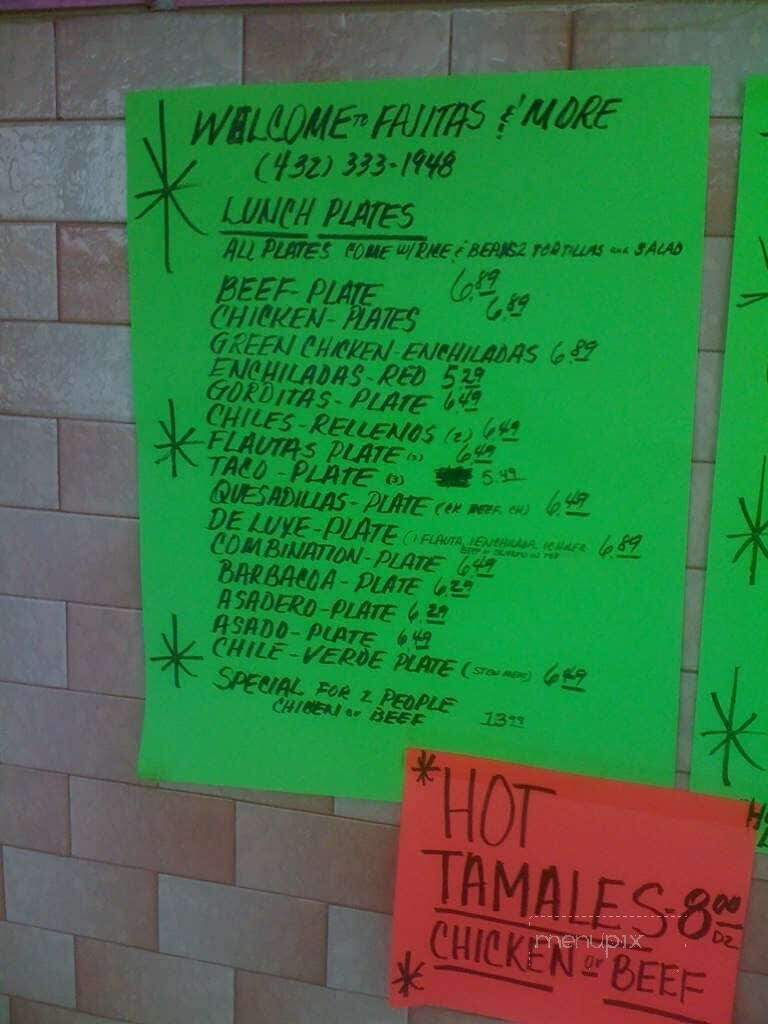 WELCOME TO FAJITAS & MORE
(432) 333-1948
LUNCH PLATES
ALL PLATES COME W/RICE & BEANS 2 TORTILLAS and SALAD
BEEF-PLATE 6.89
CHICKEN-PLATES 6.89
GREEN CHICKEN-ENCHILADAS 6.89
ENCHILADAS-RED 5.29
GORDITAS-PLATE 6.49
CHILES-RELLENOS (2) 6.49
FLAUTAS PLATE 6.49
TACO-PLATE (3) 5.49
QUESADILLAS-PLATE 6.49
DE LUXE-PLATE (1 FLAUTA, 1 ENCHILADA, 6.89
COMBINATION-PLATE 6.49
BARBACOA-PLATE 6.29
ASADERO-PLATE 6.29
ASADO-PLATE 6.49
CHILE-VERDE PLATE (STEW MEAT) 6.49
SPECIAL FOR 2 PEOPLE
CHICEN or BEEF 13.99
*HOT
TAMALES-8.00 DZ
CHICKEN or BEEF
menupix